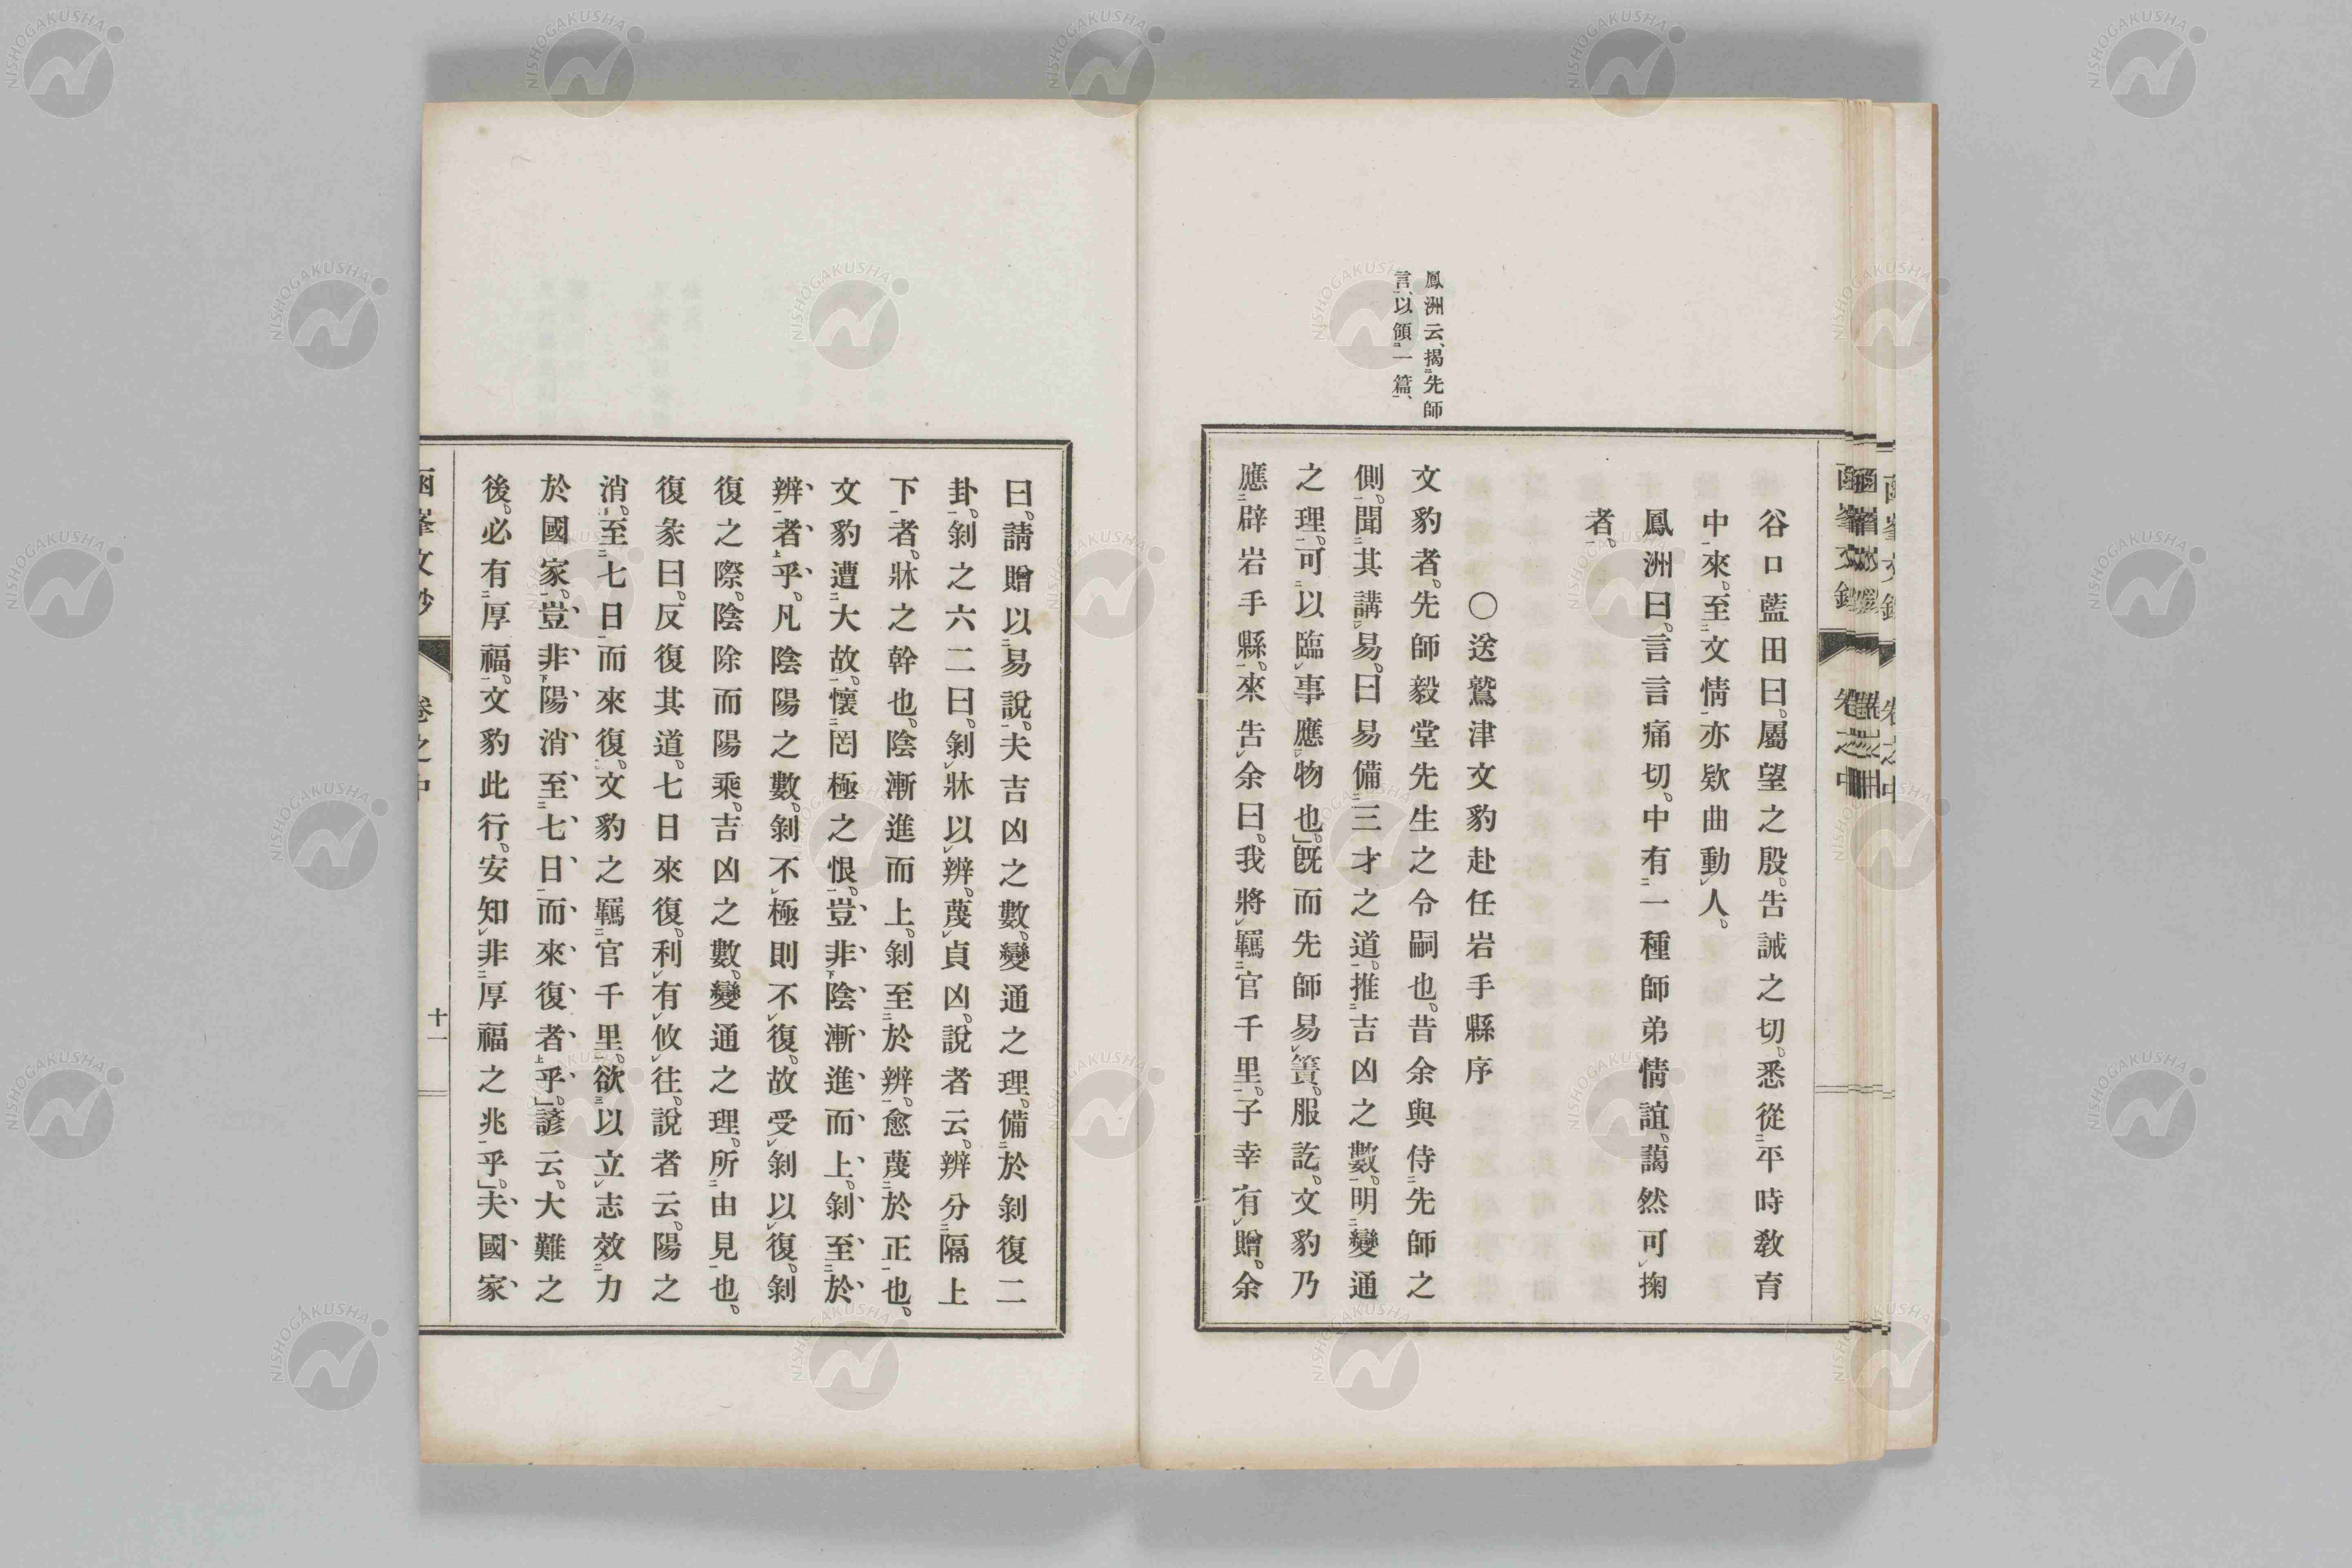 谷口藍田曰。屬望之殷。告誡之切。悉從平時敎育
中來。至文情亦欵曲動人。
鳳洲曰。言言痛切。中有一種師弟情誼。藹然可掬
者。
鳳洲云、揭先師
言、以領一篇、
○送鷲津文豹赴任岩手縣序
文豹者。先師毅堂先生之令嗣也。昔余與侍先師之
側。聞其講易。曰易備三才之道。推吉凶之數。明變通
之理。可以臨事應物也。」旣而先師易簀。服訖。文豹乃
應辟岩手縣。來告余曰。我將羈官千里。子幸有贈。余
曰。請贈以易說。夫吉凶之數。變通之理。備於剝復二
卦。剝之六二曰。剝牀以辨。蔑貞凶。說者云。辨分隔上
下者。牀之幹也。陰漸進而上。剝至於辨。愈蔑於正也。
文豹遭大故。懷罔極之恨。豈非陰漸進而上。剝至於
辨者乎。凡陰陽之數。剝不極則不復。故受剝以復。剝
復之際。陰除而陽乘。吉凶之數。變通之理。所由見也。
復彖曰。反復其道。七日來復。利有攸往。說者云。陽之
消。至七日而來復。文豹之羈官千里。欲以立志效力
於國家。豈非陽消至七日而來復者乎。」諺云。大難之
後。必有厚福。文豹此行。安知非厚福之兆乎。」夫國家
函峯文鈔 卷之中 十一